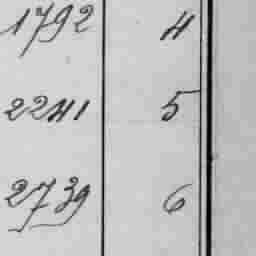 1792 4
2241 5
2739 6